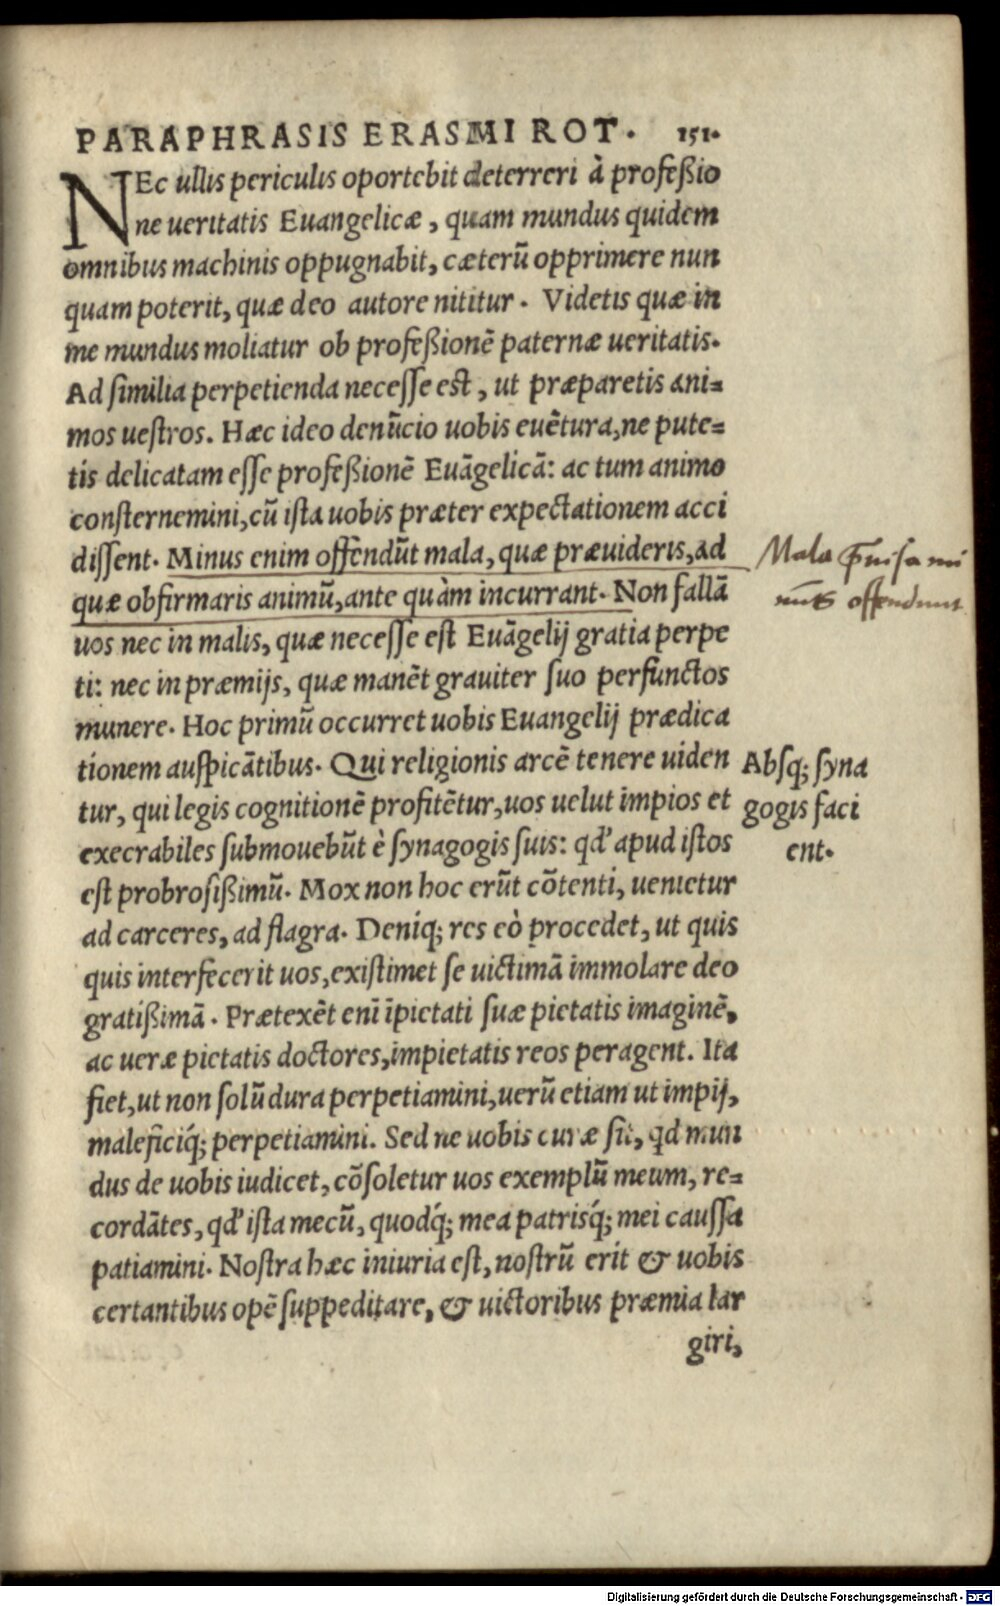 PARAPHRASIS ERASMI ROT. 151.
NEc ullis periculis oportebit deterreri à profeßio
ne ueritatis Euangelicæ, quam mundus quidem
omnibus machinis oppugnabit, cæterũ opprimere nun
quam poterit, quæ deo autore nititur. Videtis quæ in
me mundus moliatur ob profeßionẽ paternæ ueritatis.
Ad ſimilia perpetienda neceſſe eſt, ut præparetis ani=
mos ueſtros. Hæc ideo denũcio uobis euẽtura, ne pute=
tis delicatam eſſe profeßionẽ Euãgelicã: ac tum animo
conſternemini, cũ iſta uobis præter expectationem acci
diſſent. Minus enim offendũt mala, quæ præuideris, ad
quæ obfirmaris animũ, ante quàm incurrant. Non fallã
uos nec in malis, quæ neceſſe eſt Euãgelij gratia perpe
ti: nec in præmijs, quæ manẽt grauiter ſuo perfunctos
munere. Hoc primũ occurret uobis Euangelij prædica
tionem auſpicãtibus. Qui religionis arcẽ tenere uiden
tur, qui legis cognitionẽ profitẽtur, uos uelut impios et
execrabiles ſubmouebũt è ſynagogis ſuis: qd' apud iſtos
eſt probroſißimũ. Mox non hoc erũt cõtenti, uenietur
ad carceres, ad flagra. Deniq; res eò procedet, ut quis
quis interfecerit uos, exiſtimet ſe uictimã immolare deo
gratißimã. Prætexẽt enĩ ĩpietati ſuæ pietatis imaginẽ,
ac ueræ pietatis doctores, impietatis reos peragent. Ita
fiet, ut non ſolũ dura perpetiamini, uerũ etiam ut impij,
maleficiq́; perpetiamini. Sed ne uobis curæ ſit, qd mun
dus de uobis iudicet, cõſoletur uos exemplũ meum, re=
cordãtes, qd' iſta mecũ, quodq́; mea patrisq́; mei cauſſa
patiamini. Noſtra hæc iniuria eſt, noſtrũ erit & uobis
certantibus opẽ ſuppeditare, & uictoribus præmia lar
giri,
Mala p̄uiſa mi
nus offendunt
Abſq; ſyna
gogis faci
ent.
Digitalisierung gefördert durch die Deutsche Forschungsgemeinschaft - DFG